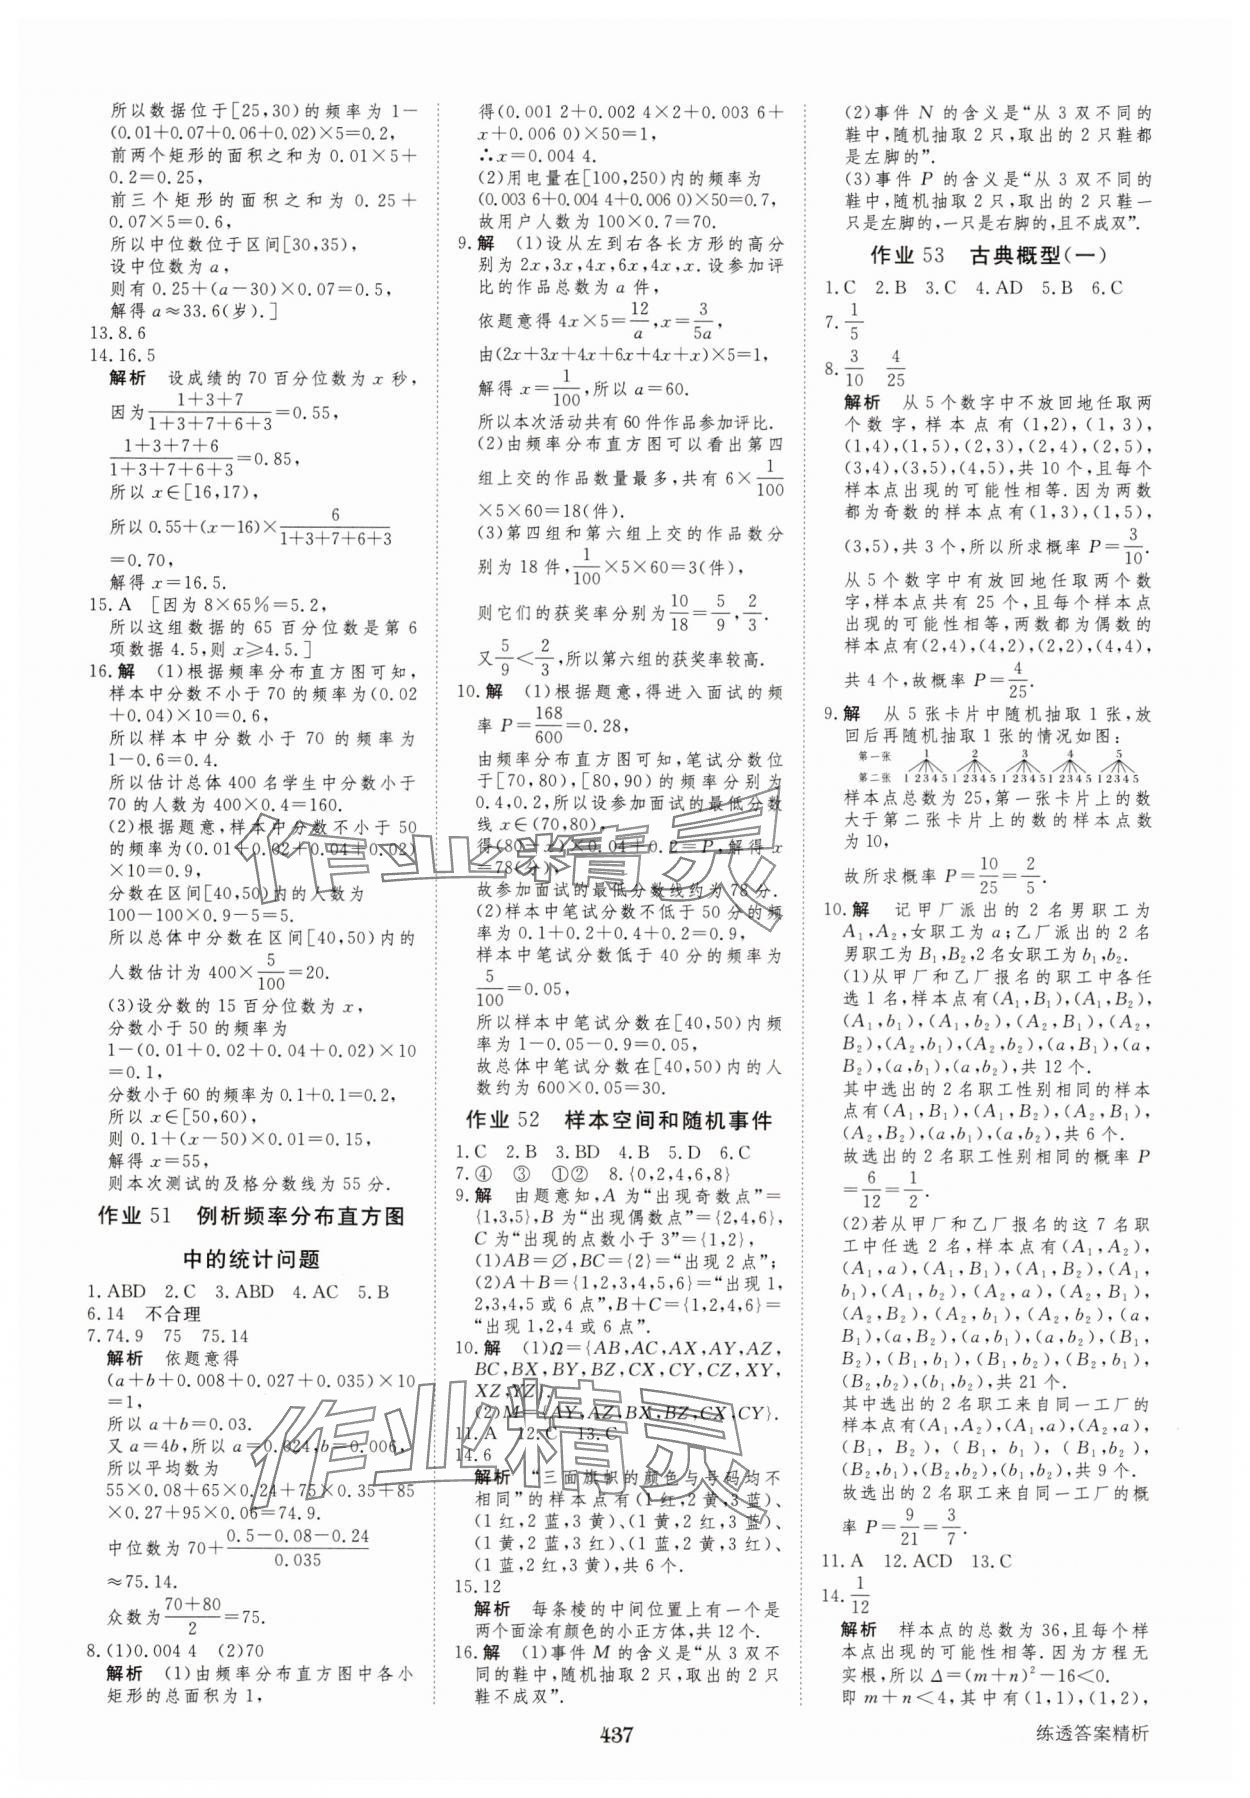 所以数据位于[25,30)的频率为1-
(0.01+0.07+0.06+0.02)×5=0.2,
前两个矩形的面积之和为0.01×5+
0.2=0.25,
前三个矩形的面积之和为0.25+
0.07×5=0.6,
所以中位数位于区间[30,35),
设中位数为a,
则有0.25+(a-30)×0.07=0.5,
解得a≈33.6(岁).]
13.8.6
14.16.5
解析 设成绩的70百分位数为x秒,
因为\frac{1+3+7}{1+3+7+6+3}=0.55,
\frac{1+3+7+6}{1+3+7+6+3}=0.85,
所以x∈[16,17),
所以0.55+(x-16)×\frac{6}{1+3+7+6+3}
=0.70,
解得x=16.5.
15.A [因为8×65%=5.2,
所以这组数据的65百分位数是第6
项数据4.5,则x≥4.5.]
16.解 (1)根据频率分布直方图可知,
样本中分数不小于70的频率为(0.02
+0.04)×10=0.6,
所以样本中分数小于70的频率为
1-0.6=0.4.
所以估计总体400名学生中分数小于
70的人数为400×0.4=160.
(2)根据题意,样本中分数不小于50
的频率为(0.01+0.02+0.04+0.02)
×10=0.9,
分数在区间[40,50)内的人数为
100-100×0.9-5=5.
所以总体中分数在区间[40,50)内的
人数估计为400×\frac{5}{100}=20.
(3)设分数的15百分位数为x,
分数小于50的频率为
1-(0.01+0.02+0.04+0.02)×10
=0.1,
分数小于60的频率为0.1+0.1=0.2,
所以x∈[50,60),
则0.1+(x-50)×0.01=0.15,
解得x=55,
则本次测试的及格分数线为55分.
作业51 例析频率分布直方图
中的统计问题
1.ABD 2.C 3.ABD 4.AC 5.B
6.14 不合理
7.74.9 75 75.14
解析 依题意得
(a+b+0.008+0.027+0.035)×10
=1,
所以a+b=0.03.
又a=4b,所以a=0.024,b=0.006,
所以平均数为
55×0.08+65×0.24+75×0.35+85
×0.27+95×0.06=74.9.
中位数为70+\frac{0.5-0.08-0.24}{0.035}
≈75.14.
众数为\frac{70+80}{2}=75.
8.(1)0.004 4 (2)70
解析 (1)由频率分布直方图中各小
矩形的总面积为1,
得(0.001 2+0.002 4×2+0.003 6+
x+0.006 0)×50=1,
∴x=0.004 4.
(2)用电量在[100,250)内的频率为
(0.003 6+0.004 4+0.006 0)×50=0.7,
故用户人数为100×0.7=70.
9.解 (1)设从左到右各长方形的高分
别为2x,3x,4x,6x,4x,x.设参加评
比的作品总数为a件,
依题意得4x×5=\frac{12}{a},x=\frac{3}{5a},
由(2x+3x+4x+6x+4x+x)×5=1,
解得x=\frac{1}{100},所以a=60.
所以本次活动共有60件作品参加评比.
(2)由频率分布直方图可以看出第四
组上交的作品数量最多,共有6×\frac{1}{100}
×5×60=18(件).
(3)第四组和第六组上交的作品数分
别为18件,\frac{1}{100}×5×60=3(件),
则它们的获奖率分别为\frac{10}{18}=\frac{5}{9},\frac{2}{3}.
又\frac{5}{9}<\frac{2}{3},所以第六组的获奖率较高.
10.解 (1)根据题意,得进入面试的频
率P=\frac{168}{600}=0.28,
由频率分布直方图可知,笔试分数位
于[70,80),[80,90)的频率分别为
0.4,0.2,所以设参加面试的最低分数
线x∈(70,80),
得(80-x)×0.04+0.2=P,解得x
=78(分).
故参加面试的最低分数线约为78分.
(2)样本中笔试分数不低于50分的频
率为0.1+0.2+0.4+0.2=0.9,
样本中笔试分数低于40分的频率为
\frac{5}{100}=0.05,
所以样本中笔试分数在[40,50)内频
率为1-0.05-0.9=0.05,
故总体中笔试分数在[40,50)内的人
数约为600×0.05=30.
作业52 样本空间和随机事件
1.C 2.B 3.BD 4.B 5.D 6.C
7.④ ③ ①② 8.{0,2,4,6,8}
9.解 由题意知,A为“出现奇数点”=
{1,3,5},B为“出现偶数点”={2,4,6},
C为“出现的点数小于3”={1,2},
(1)AB=∅,BC={2}=“出现2点”;
(2)A+B={1,2,3,4,5,6}=“出现1,
2,3,4,5或6点”,B+C={1,2,4,6}=
“出现1,2,4或6点”.
10.解 (1)Ω={AB,AC,AX,AY,AZ,
BC,BX,BY,BZ,CX,CY,CZ,XY,
XZ,YZ}.
(2)M={AY,AZ,BX,BZ,CX,CY}.
11.A 12.C 13.C
14.6
解析 “三面旗帜的颜色与号码均不
相同”的样本点有(1红,2黄,3蓝)、
(1红,2蓝,3黄)、(1黄,2红,3蓝)、
(1黄,2蓝,3红)、(1蓝,2红,3黄)、
(1蓝,2黄,3红),共6个.
15.12
解析 每条棱的中间位置上有一个是
两个面涂有颜色的小正方体,共12个.
16.解 (1)事件M的含义是“从3双不
同的鞋中,随机抽取2只,取出的2只
鞋不成双”.
(2)事件N的含义是“从3双不同的
鞋中,随机抽取2只,取出的2只鞋都
是左脚的”.
(3)事件P的含义是“从3双不同的
鞋中,随机抽取2只,取出的2只鞋一
只是左脚的,一只是右脚的,且不成双”.
作业53 古典概型(一)
1.C 2.B 3.C 4.AD 5.B 6.C
7.\frac{1}{5}
8.\frac{3}{10} \frac{4}{25}
解析 从5个数字中不放回地任取两
个数字,样本点有(1,2),(1,3),
(1,4),(1,5),(2,3),(2,4),(2,5),
(3,4),(3,5),(4,5),共10个,且每个
样本点出现的可能性相等.因为两数
都为奇数的样本点有(1,3),(1,5),
(3,5),共3个,所以所求概率P=\frac{3}{10}.
从5个数字中有放回地任取两个数
字,样本点共有25个,且每个样本点
出现的可能性相等,两数都为偶数的
样本点有(2,4),(4,2),(2,2),(4,4),
共4个,故概率P=\frac{4}{25}.
9.解 从5张卡片中随机抽取1张,放
回后再随机抽取1张的情况如图:
第一张 1 2 3 4 5
第二张 1 2 3 4 5 1 2 3 4 5 1 2 3 4 5 1 2 3 4 5 1 2 3 4 5
样本点总数为25,第一张卡片上的数
大于第二张卡片上的数的样本点数
为10,
故所求概率P=\frac{10}{25}=\frac{2}{5}.
10.解 记甲厂派出的2名男职工为
A₁,A₂,女职工为a;乙厂派出的2名
男职工为B₁,B₂,2名女职工为b₁,b₂.
(1)从甲厂和乙厂报名的职工中各任
选1名,样本点有(A₁,B₁),(A₁,B₂),
(A₁,b₁),(A₁,b₂),(A₂,B₁),(A₂,
B₂),(A₂,b₁),(A₂,b₂),(a,B₁),(a,
B₂),(a,b₁),(a,b₂),共12个.
其中选出的2名职工性别相同的样本
点有(A₁,B₁),(A₁,B₂),(A₂,B₁),
(A₂,B₂),(a,b₁),(a,b₂),共6个.
故选出的2名职工性别相同的概率P
=\frac{6}{12}=\frac{1}{2}.
(2)若从甲厂和乙厂报名的这7名职
工中任选2名,样本点有(A₁,A₂),
(A₁,a),(A₁,B₁),(A₁,B₂),(A₁,
b₁),(A₁,b₂),(A₂,a),(A₂,B₁),
(A₂,B₂),(A₂,b₁),(A₂,b₂),(a,
B₁),(a,B₂),(a,b₁),(a,b₂),(B₁,
B₂),(B₁,b₁),(B₁,b₂),(B₂,b₁),
(B₂,b₂),(b₁,b₂),共21个.
其中选出的2名职工来自同一工厂的
样本点有(A₁,A₂),(A₁,a),(A₂,a),
(B₁,B₂),(B₁,b₁),(B₁,b₂),
(B₂,b₁),(B₂,b₂),(b₁,b₂),共9个.
故选出的2名职工来自同一工厂的概
率P=\frac{9}{21}=\frac{3}{7}.
11.A 12.ACD 13.C
14.\frac{1}{12}
解析 样本点的总数为36,且每个样
本点出现的可能性相等.因为方程无
实根,所以Δ=(m+n)²-16<0.
即m+n<4,其中有(1,1),(1,2),
437
练透答案精析
作业精灵
作业精灵